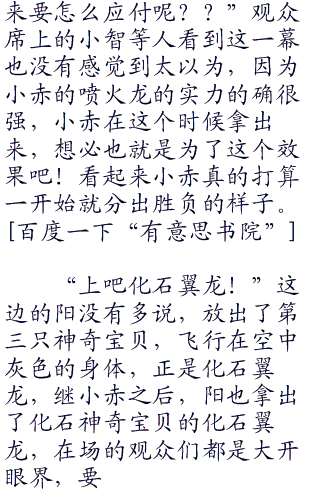 来要怎么应付呢？？”观众
席上的小智等人看到这一幕
也没有感觉到太以为，因为
小赤的喷火龙的实力的确很
强，小赤在这个时候拿出
来，想必也就是为了这个效
果吧！看起来小赤真的打算
一开始就分出胜负的样子。
[百度一下“有意思书院”]
“上吧化石翼龙！”这
边的阳没有多说，放出了第
三只神奇宝贝，飞行在空中
灰色的身体，正是化石翼
龙，继小赤之后，阳也拿出
了化石神奇宝贝的化石翼
龙，在场的观众们都是大开
眼界，要